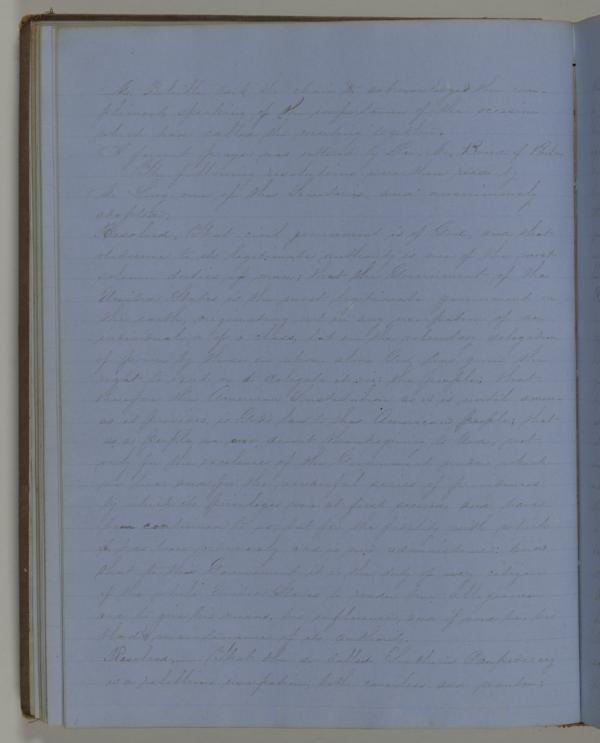 Mr. took the chair & acknowledged the com-
pliment speaking of the importance of the occasion
which had called the meeting together.
A fervent prayer was offered by Rev. Mr. of
The following resolutions were then read by
Mr. one of the Secretaries and unanimously
adopted.
Resolved, That civil government is of God, and that
obedience to its legitimate authority is one of the most
solemn duties of man; that the Government of the
United States is the most legitimate government on
the earth, originating not in any usurpation of an
individual or of a class, but in the voluntary delegation
of power by those in whom alone God has given the
right to hold or to delegate it viz: the people; that
therefore the American Constitution as it is, until amen-
as it provides, is God's law to the American people; that
as a People we owe devout thanksgiving to God, not
only for the excellence of the Government under which
we live and for the wonderful series of providences
by which its privileges were at first secured and have
been continued to us, but for the fidelity with which
it has been and is now administered: and
that to this Government it is the duty of every citizen
of the whole United States to render true allegiance
and to give his means, his influence, and if need be his
blood in maintenance of its authority.
Resolved, That the so called Southern Confederacy
is a rebellious usurpation, both causeless and wanton;